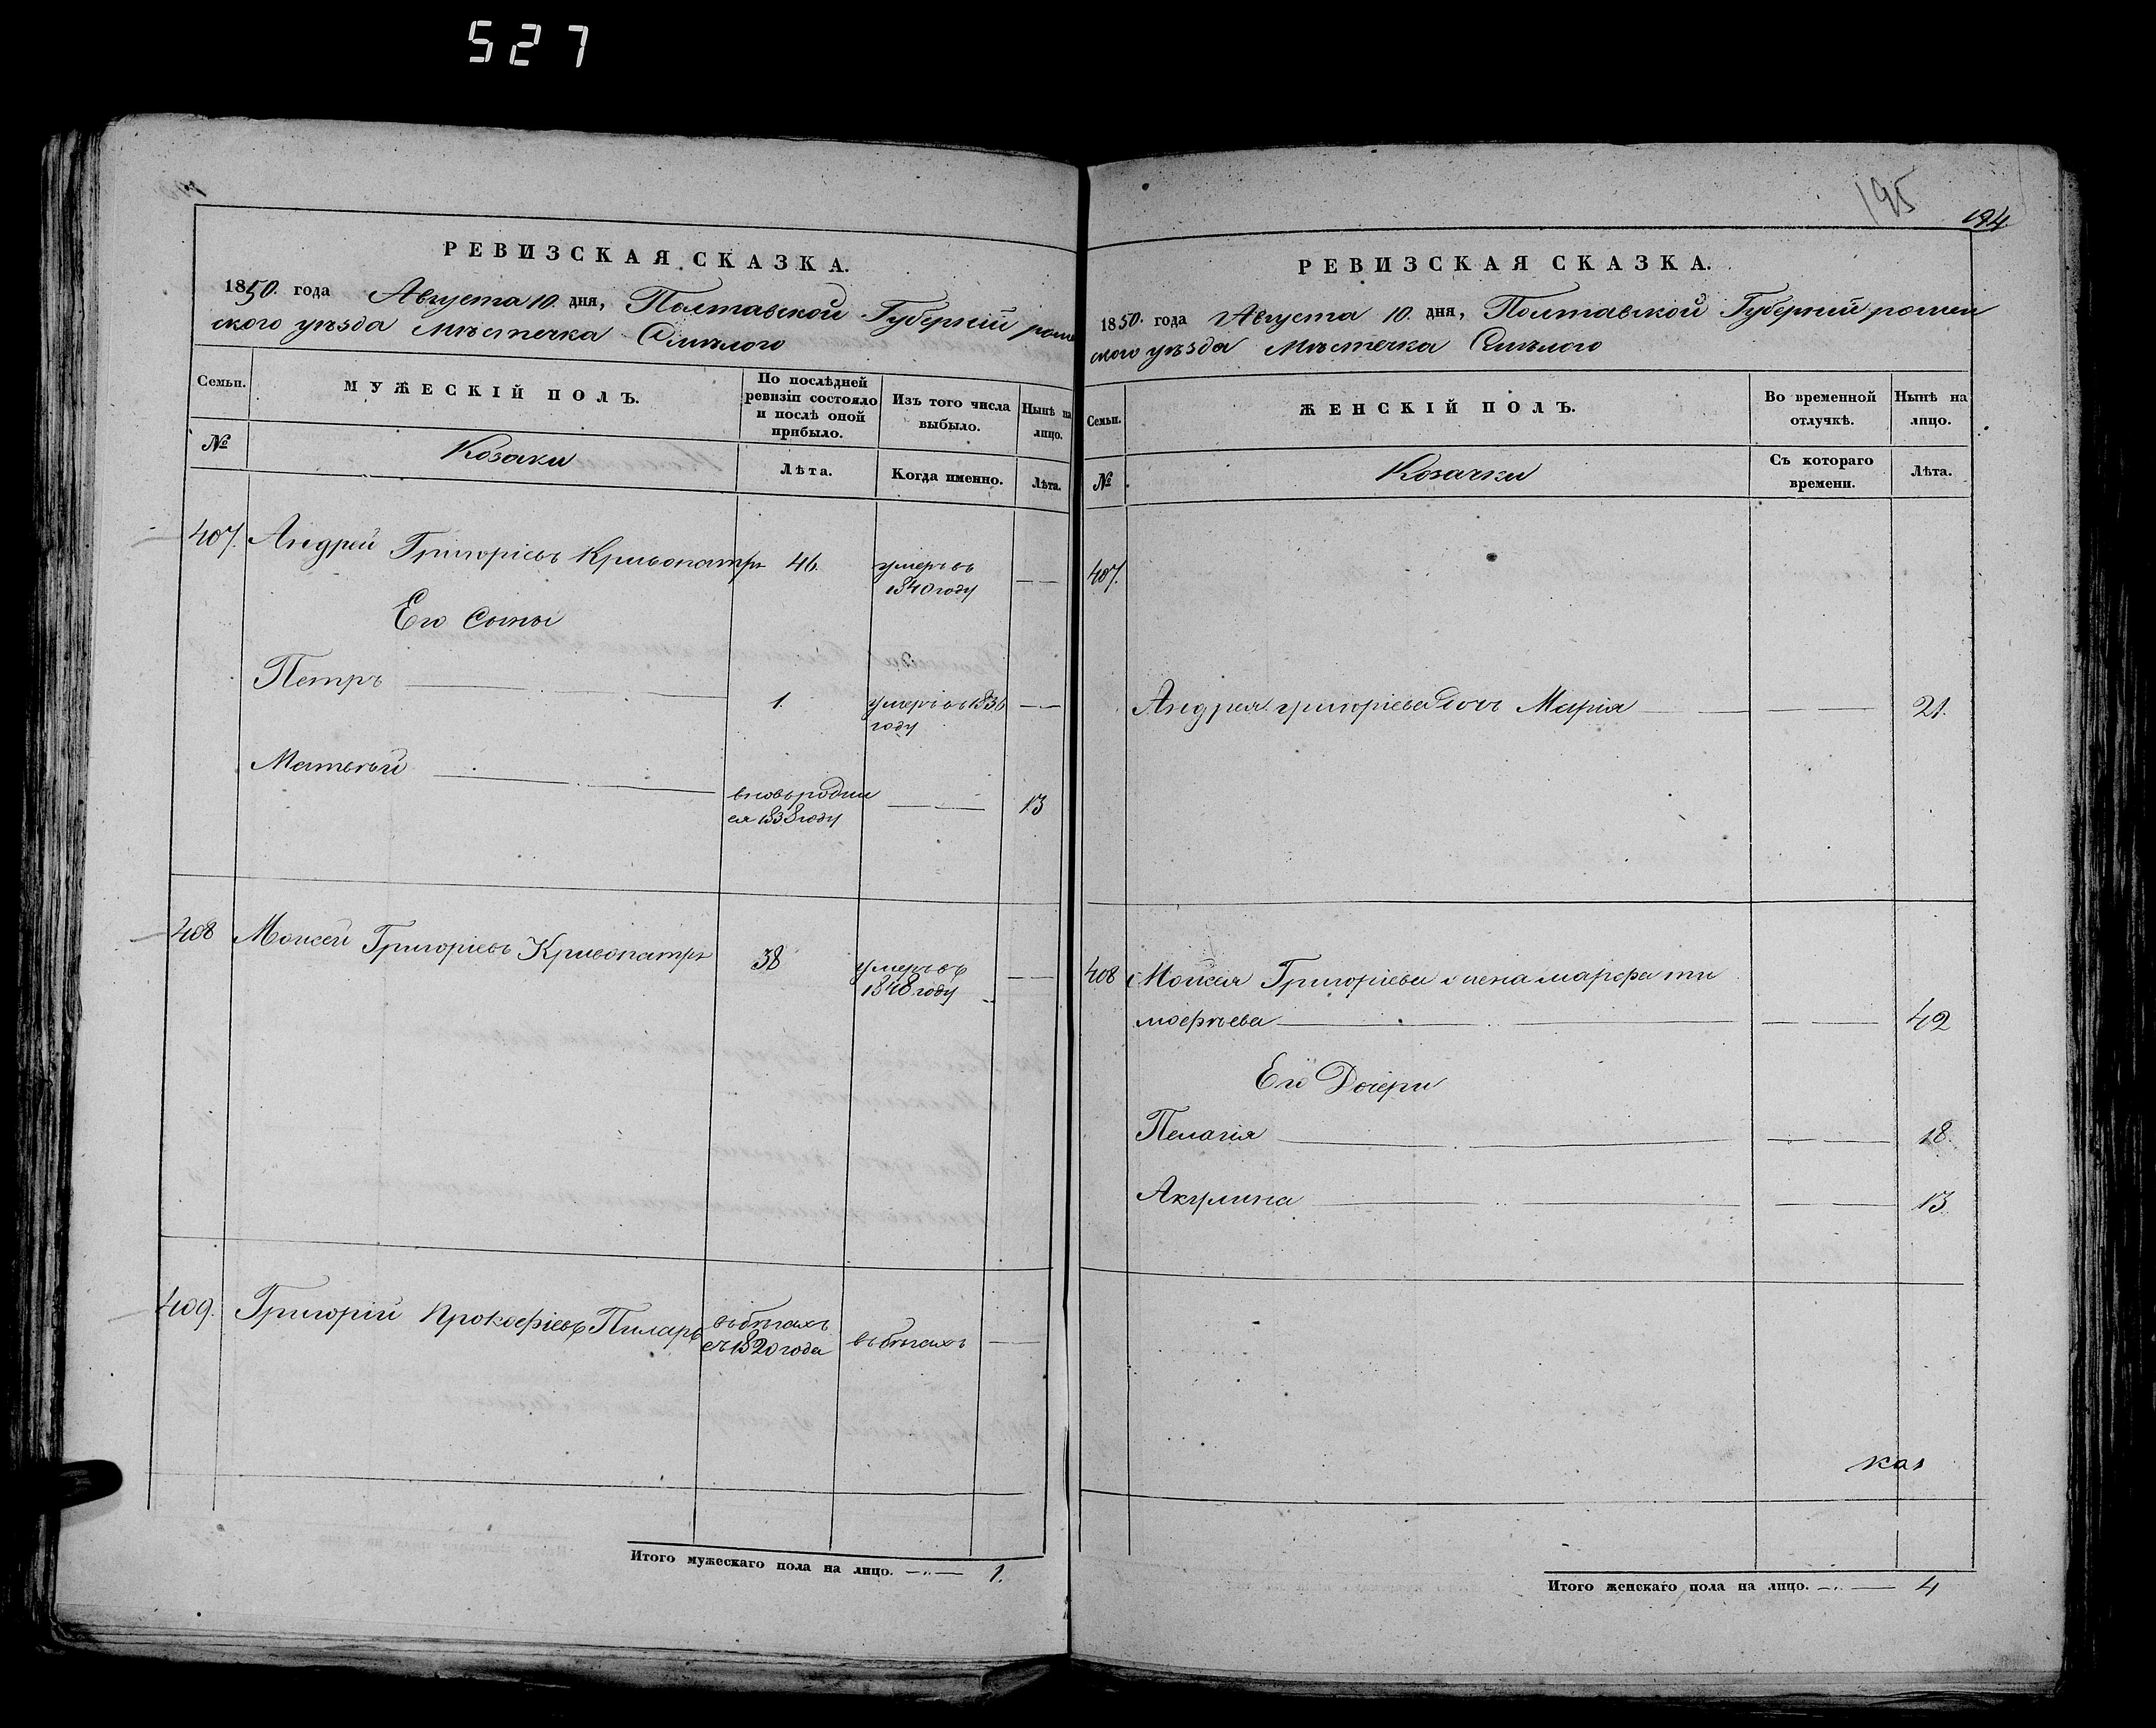 527
РЕВИЗСКАЯ СКАЗКА.
1850. года Августа 10. дня, Полтавской Губерніи роме
ского уѣзда Мѣстечка Смѣлого
Семьи.
МУЖЕСКІЙ ПОЛЪ.
По послѣдней
ревизіи состояло
и послѣ оной
прибыло.
Изъ того числа
выбыло.
Нынѣ на
лицо.
№
Козаки
Лѣта.
Когда именно.
Лѣта.
407. Андрей Григоріевъ Кривопатръ 46. умеръ въ
1840 году
Его Сыны
Петръ 1. умеръ въ 1836
году
Матвѣй вновь родил
ся 1838 году 13
408 Моисей Григоріевъ Кривопатръ 38 умеръ въ
1848 году
409. Григорій Прокофіевъ Пиларь въ бѣгахъ
съ 1820 года въ бѣгахъ
Итого мужескаго пола на лицо. 1.
195
194
РЕВИЗСКАЯ СКАЗКА.
1850. года Августа 10. дня, Полтавской Губерніи ромен
ского уѣзда Мѣстечка Смѣлого
Семьи.
ЖЕНСКІЙ ПОЛЪ.
Во временной
отлучкѣ.
Нынѣ на
лицо.
№
Козачки
Съ котораго
времени.
Лѣта.
407.
Андрея григоріева дочь Марія 21.
408 Моисея Григоріева жена марфа ти
мофѣева 42
Его Дочери
Пелагія 18.
Акулина 13.
Итого женскаго пола на лицо. 4